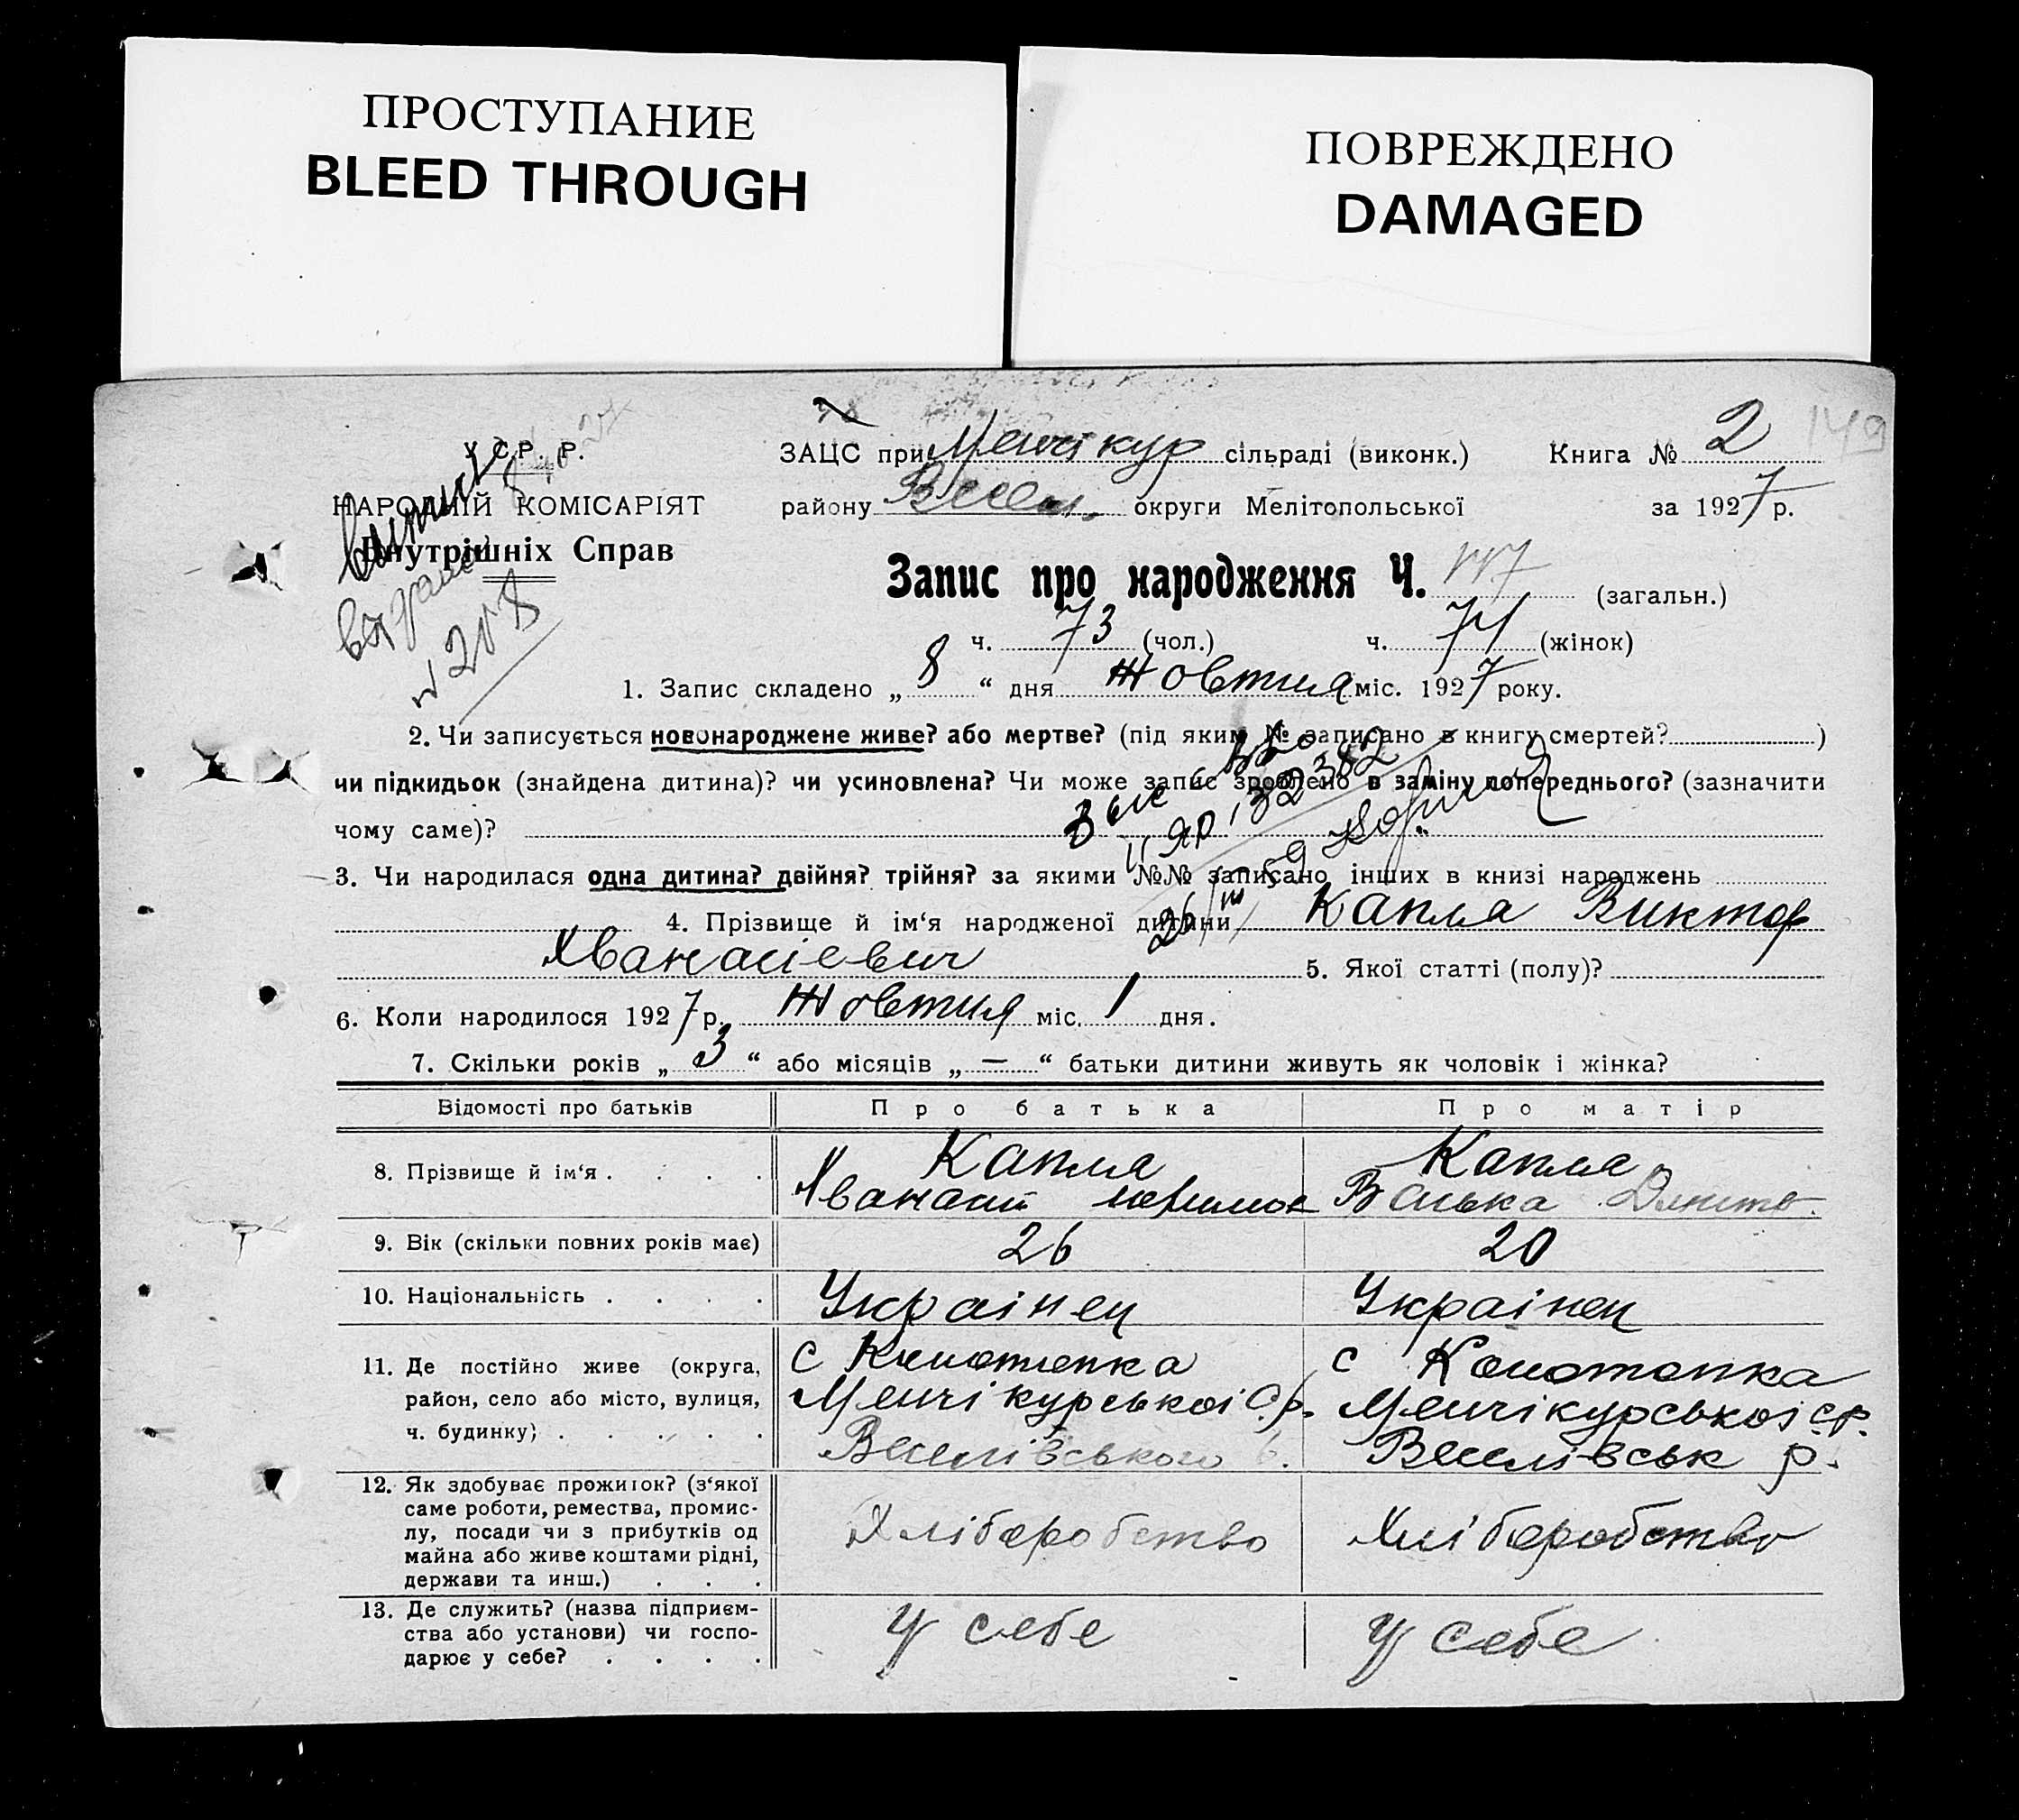 ПРОСТУПАНИЕ
BLEED THROUGH
ПОВРЕЖДЕНО
DAMAGED
149
У С.Р. Р.
НАРОДНІЙ КОМІСАРІЯТ
Внутрішніх Справ
видано
№ 208
ЗАЦС при Менчікур сільраді (виконк.) Книга № 2
району Весел. округи Мелітопольської за 1927 р.
Запис про народження Ч. 147 (загальн.)
ч. 73 (чол.) ч. 74 (жінок)
1. Запис складено „ 8 “ дня Жовтня міс. 1927 року.
2. Чи записується новонароджене живе? або мертве? (під яким № записано в книгу смертей? )
чи підкидьок (знайдена дитина)? чи усиновлена? Чи може запис зроблено в заміну попереднього? (зазначити
чому саме)?
3. Чи народилася одна дитина? двійня? трійня? за якими №№ записано інших в книзі народжень
4. Прізвище й ім‘я народженої дитини Капля Виктор
Хванасієвич 5. Якої статті (полу)?
6. Коли народилося 1927 р. Жовтня міс. 1 дня.
7. Скільки років „ 3 “ або місяців „ — “ батьки дитини живуть як чоловік і жінка?
Відомості про батьків Про батька Про матір
8. Прізвище й ім‘я . . . . Капля Капля
Хванасій Васька
9. Вік (скільки повних років має) 26 20
10. Національність . . . . Українец Українец
11. Де постійно живе (округа, с Конотопка с Конотопка
район, село або місто, вулиця, Менчікурської с.р. Менчікурської с.р.
ч. будинку) . . . . . Веселівського Веселівськ р.
12. Як здобуває прожиток? (з‘якої
саме роботи, ремества, промис-
лу, посади чи з прибутків од Хліборобство Хліборобство
майна або живе коштами рідні,
держави та инш.) . . .
13. Де служить? (назва підприєм-
ства або установи) чи госпо- У себе У себе
дарює у себе? . . . .